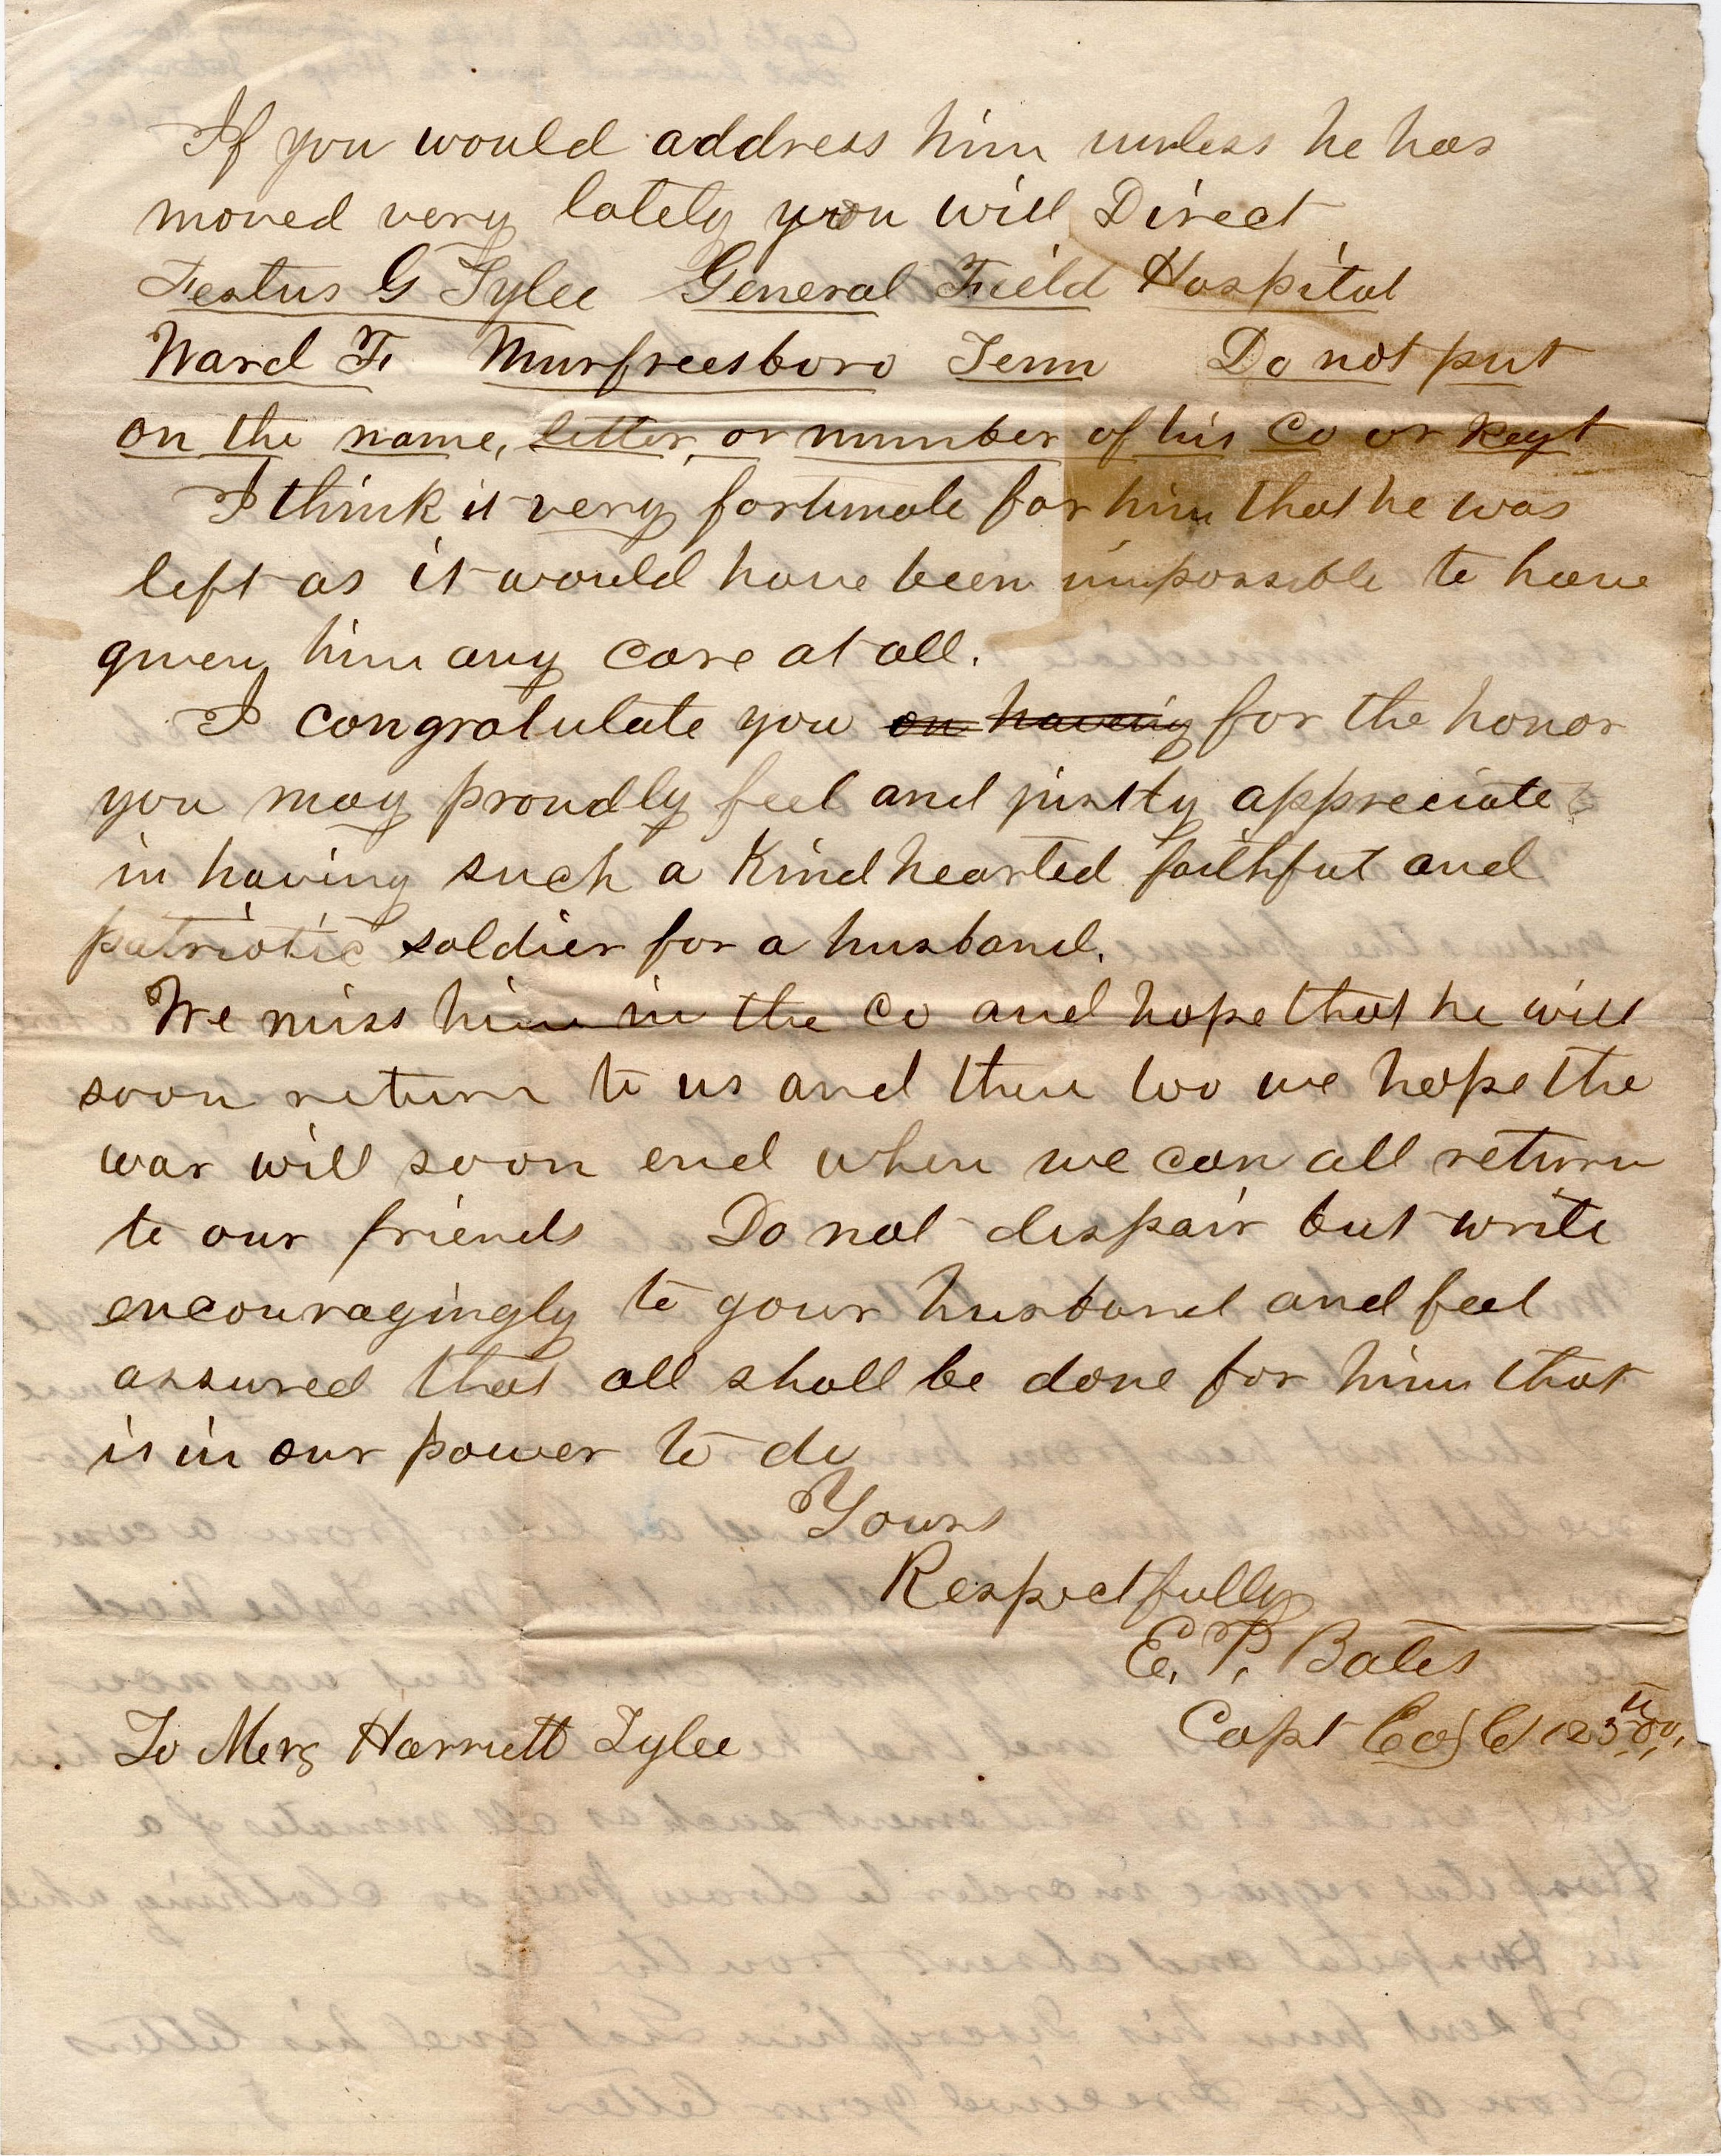 If you would address him unless he has
moved very lately you will Direct
Festus G Tylee General Field Hospital
Ward F Murfreesboro Tenn Do not put
on the name, letter, or number of his Co or Regt
I think it very fortunate for him that he was
left as it would have been impossible to have
given him any care at all.
I congratulate you on having for the honor
you may proudly feel and justly appreciate
in having such a Kind hearted faithful and
patriotic soldier for a husband.
We miss him in the Co and hope that he will
soon return to us and then too we hope the
war will soon end when we can all return
to our friends Do not despair but write
encouragingly to your husband and feel
assured that all shall be done for him that
is in our power to do
Yours
Respectfully
E. P. Bates
Capt Co C 125th O.V.
To Mers Harriett Tylee